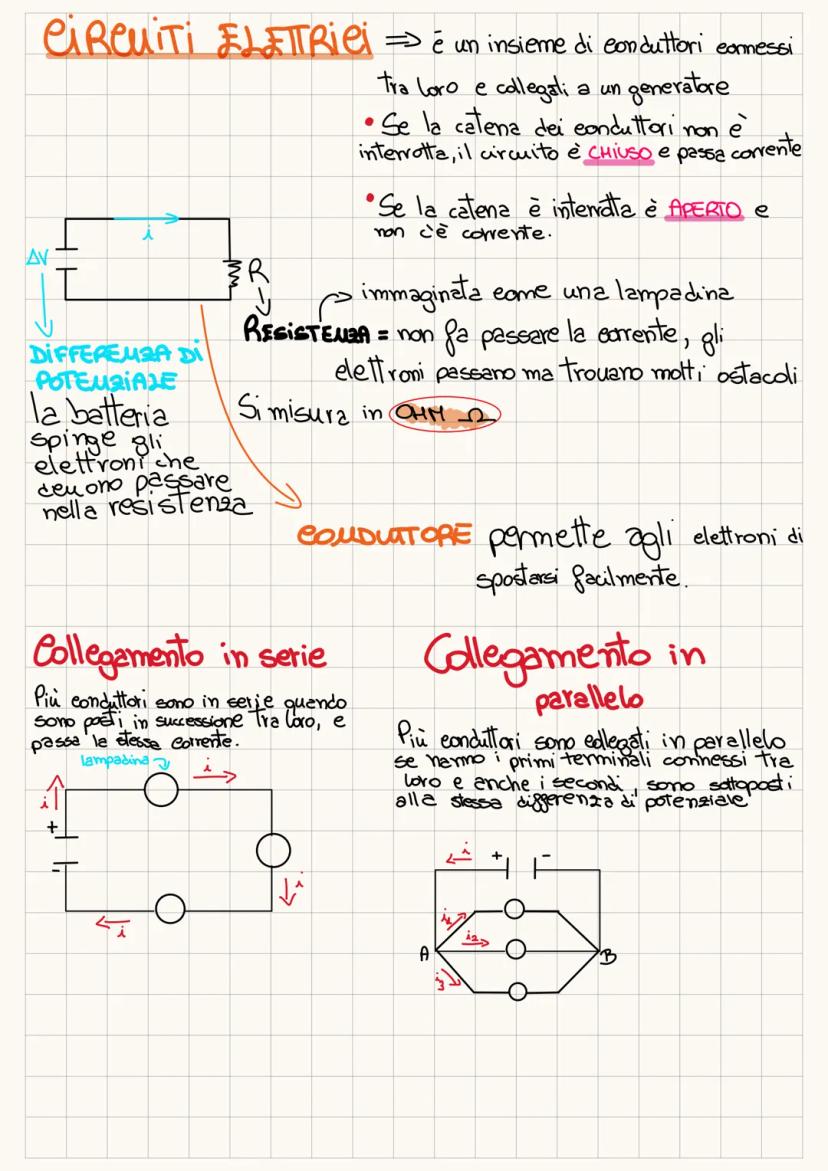 CIRCUITI ELETTRICI ⇒ è un insieme di conduttori connessi
tra loro e collegati a un generatore
• Se la catena dei conduttori non è
interrotta, il circuito è CHIUSO e passa corrente
• Se la catena è interrotta è APERTO e
non c'è corrente.
i
ΔV
R
immaginata come una lampadina
RESISTENZA = non fa passare la corrente, gli
elettroni passano ma trovano molti ostacoli
Si misura in OHM Ω
DIFFERENZA DI
POTENZIALE
la batteria
spinge gli
elettroni che
devono passare
nella resistenza
CONDUTTORE permette agli elettroni di
spostarsi facilmente.
Collegamento in serie
Più conduttori sono in serie quando
sono posti in successione tra loro, e
passa la stessa corrente.
lampadina
i
i
+
-
i
i
Collegamento in
parallelo
Più conduttori sono collegati in parallelo
se hanno i primi terminali connessi tra
loro e anche i secondi, sono sottoposti
alla stessa differenza di potenziale
i
+ -
i1
i2
A B
i3